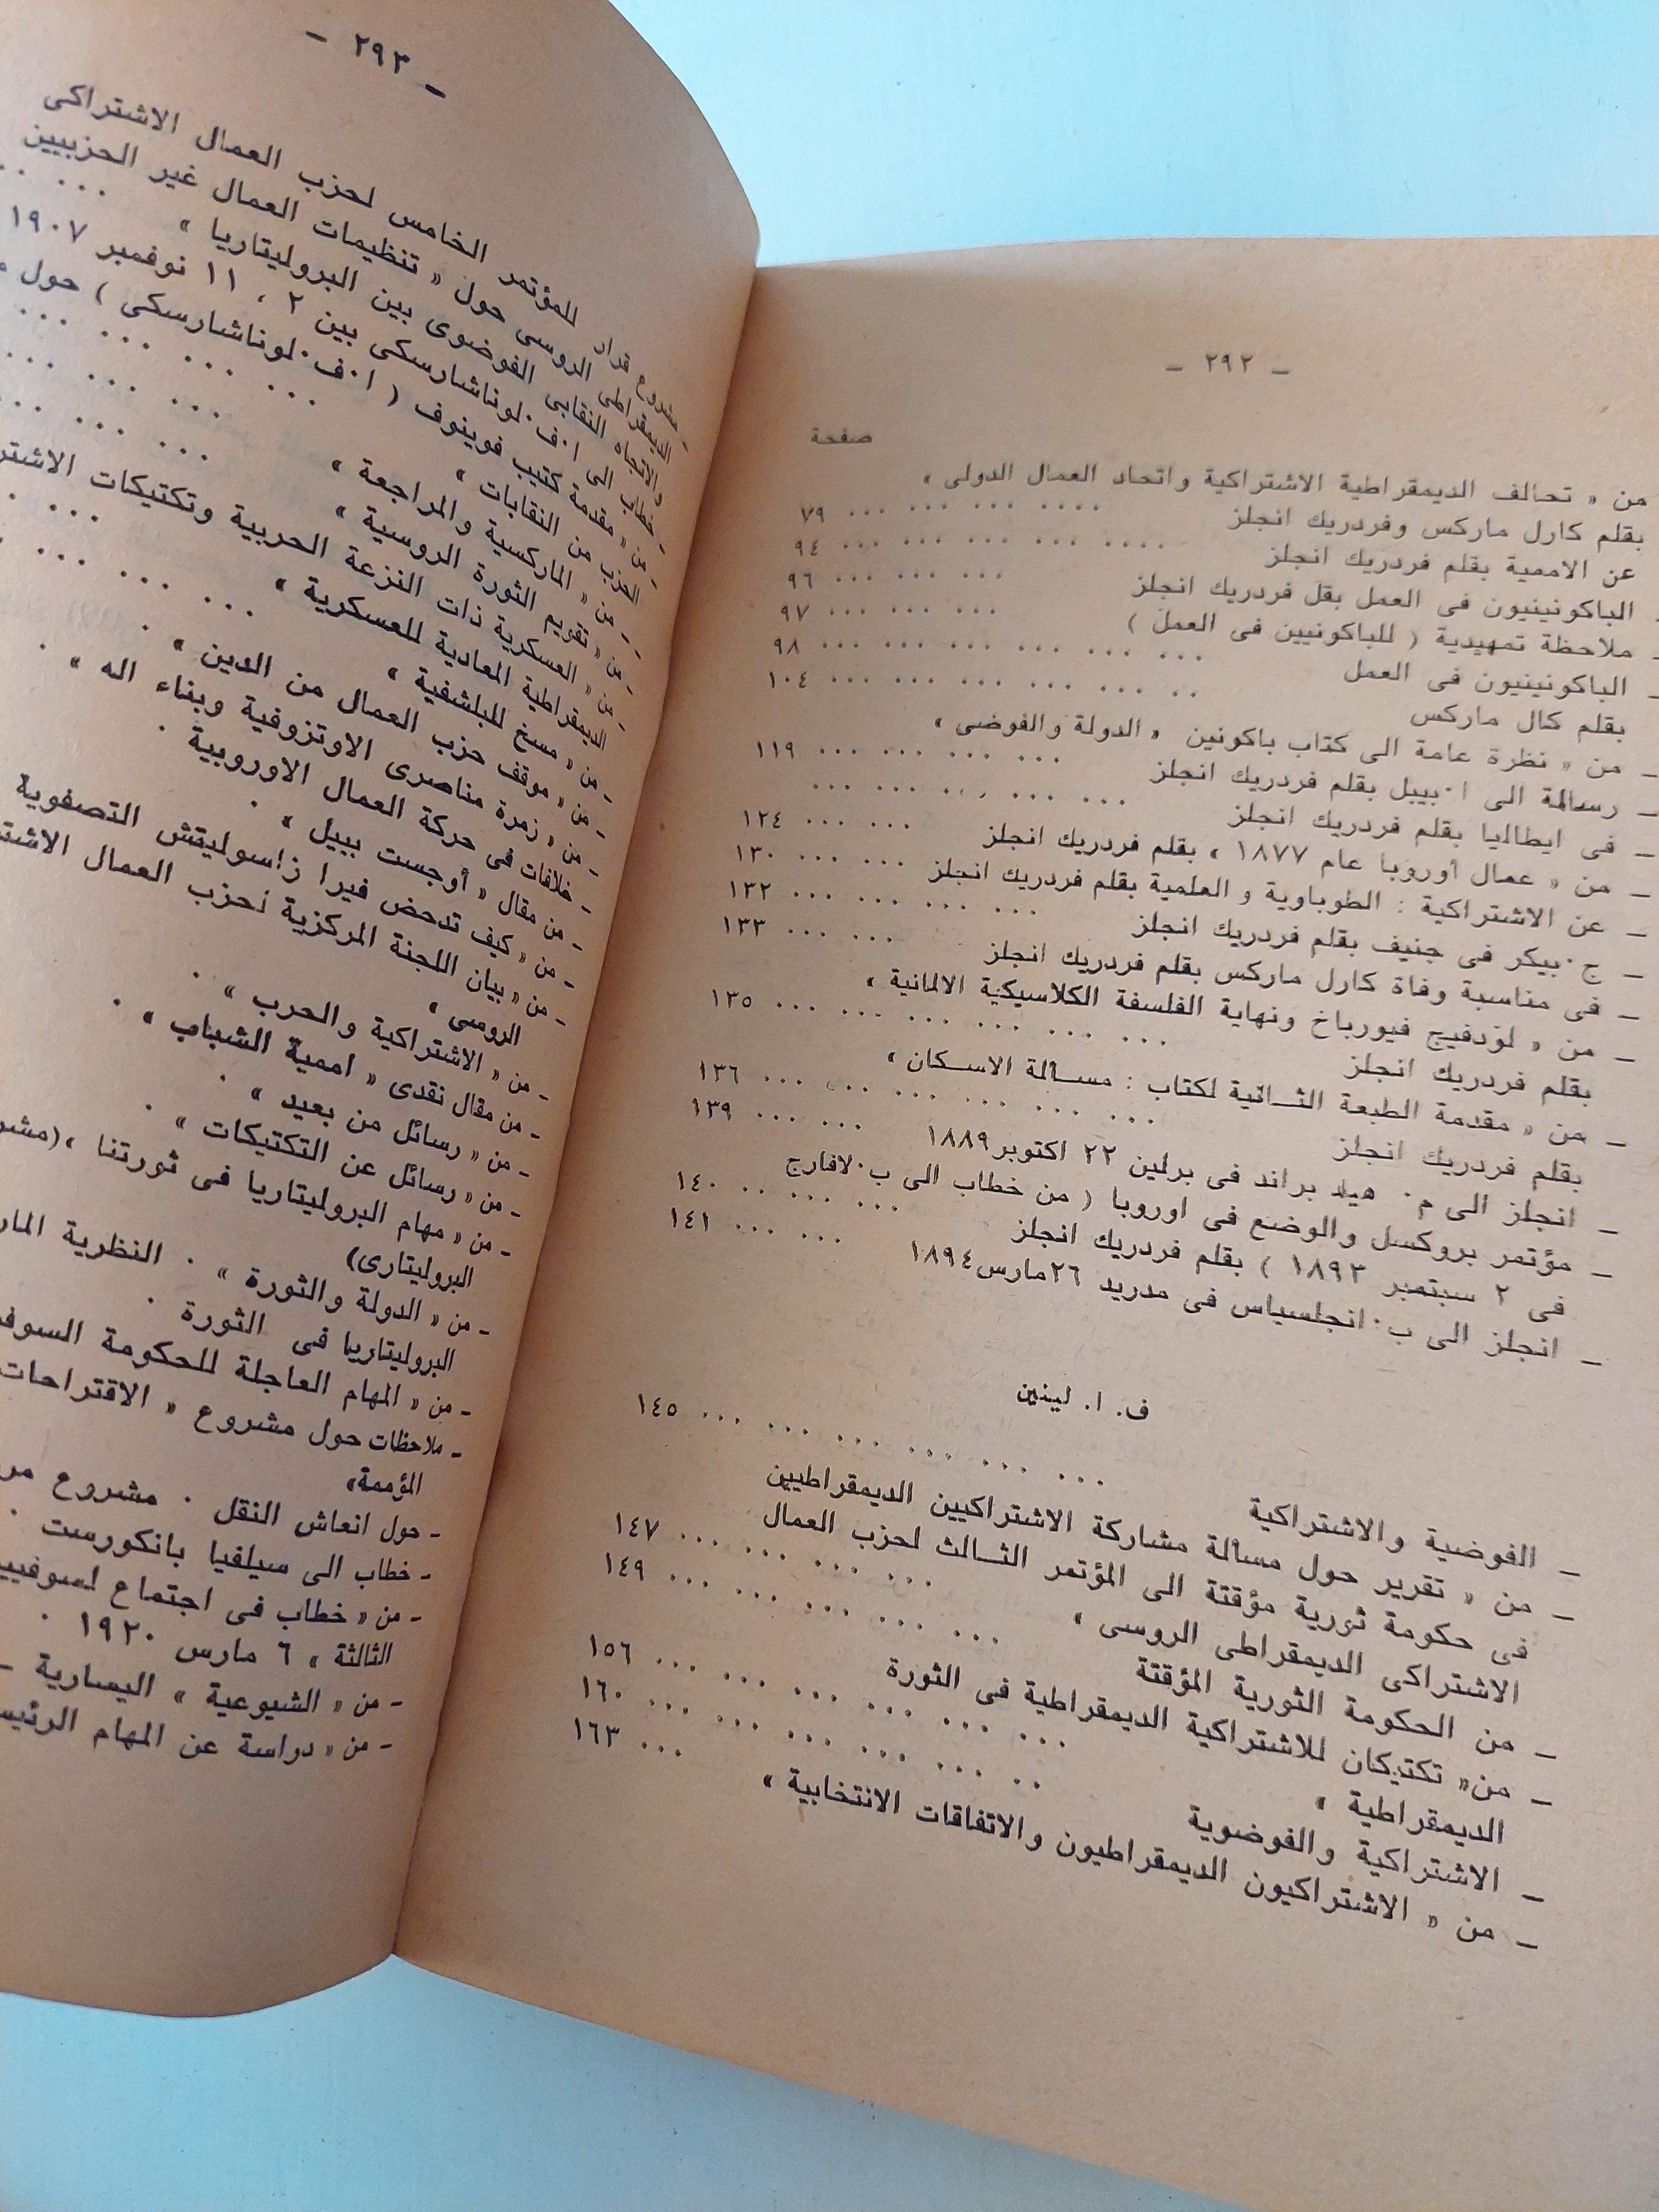 – ٢٩٢ –
صفحة
من « تحالف الديمقراطية الاشتراكية واتحاد العمال الدولى »
بقلم كارل ماركس وفردريك انجلز ... ... ... .... ٧٩
عن الاممية بقلم فردريك انجلز .... ... ... ... ... ٩٤
الباكونينيون فى العمل بقل فردريك انجلز ... ... ... ٩٦
– ملاحظة تمهيدية ( للباكونيين فى العمل ) ... ... ... ٩٧
– الباكونينيون فى العمل ... ... ... ... ... ... ٩٨
بقلم كال ماركس .. ... ... ... ... ... ١٠٤
– من « نظرة عامة الى كتاب باكونين « الدولة والفوضى »
– رسالة الى ا.بيبل بقلم فردريك انجلز ... ... ... ... ١١٩
– فى ايطاليا بقلم فردريك انجلز ... ... ... ... ...
– من « عمال أوروبا عام ١٨٧٧ » بقلم فردريك انجلز ... ... ١٢٤
– عن الاشتراكية : الطوباوية و العلمية بقلم فردريك انجلز ... ... ١٣٠
– ج.بيكر فى جنيف بقلم فردريك انجلز ... ... ... ... ١٣٢
– فى مناسبة وفاة كارل ماركس بقلم فردريك انجلز ... ... ١٣٣
– من « لودفيج فيورباخ ونهاية الفلسفة الكلاسيكية الالمانية »
بقلم فردريك انجلز ... ... ... ... ... ... ١٣٥
– من « مقدمة الطبعة الثـانية لكتاب : مسـألة الاسـكان »
بقلم فردريك انجلز ... ... ... ... ... ... ١٣٦
– انجلز الى م. هيلد براند فى برلين ٢٢ اكتوبر١٨٨٩ ... ... ١٣٩
– مؤتمر بروكسل والوضع فى اوروبا ( من خطاب الى ب.لافارج
فى ٢ سبتمبر ١٨٩٣ ) بقلم فردريك انجلز ... ... .. ١٤٠
– انجلز الى ب.انجلسياس فى مدريد ٢٦مارس١٨٩٤ ... ... ١٤١
ف. ا. لينين
– الفوضية والاشتراكية ... ... ... ... ... ... ١٤٥
– من « تقرير حول مسألة مشاركة الاشتراكيين الديمقراطيين
فى حكومة ثورية مؤقتة الى المؤتمر الثـالث لحزب العمال
الاشتراكى الديمقراطى الروسى » ... ... ... ... ١٤٧
– من الحكومة الثورية المؤقتة ... ... ... ... ... ١٤٩
– من« تكتيكان للاشتراكية الديمقراطية فى الثورة
الديمقراطية » ... ... ... ... ... ... ١٥٦
– الاشتراكية والفوضوية .. ... ... ... ... ... ١٦٠
– من « الاشتراكيون الديمقراطيون والاتفاقات الانتخابية » ... ١٦٣
– ٢٩٣ –
– مشروع قرار للمؤتمر الخامس لحزب العمال الاشتراكى
الديمقراطى الروسى حول « تنظيمات العمال غير الحزبيين
والاتجاه النقابى الفوضوى بين البروليتاريا »
– خطاب الى ا.ف.لوناشارسكى بين ٢ ، ١١ نوفمبر ١٩٠٧
– من « مقدمة كتيب فوينوف ( ا.ف.لوناشارسكى ) حول
الحزب من النقابات »
– من « الماركسية والمراجعة »
– من « تقويم الثورة الروسية »
– من « العسكرية ذات النزعة الحربية وتكتيكات
الديمقراطية المعادية للعسكرية »
– من « مسخ للبلشفية »
– من « موقف حزب العمال من الدين »
– من « زمرة مناصرى الاوتزوفية وبناء اله »
– خلافات فى حركة العمال الاوروبية
– من مقال « أوجست بيبل »
– من « كيف تدحض فيرا زاسوليتش التصفوية
– من « بيان اللجنة المركزية لحزب العمال
الروسى »
– من « الاشتراكية والحرب »
– من مقال نقدى « اممية الشباب »
– من « رسائل من بعيد »
– من « رسائل عن التكتيكات »
– من « مهام البروليتاريا فى ثورتنا »
البروليتارى)
– من « الدولة والثورة » . النظرية
البروليتاريا فى الثورة
– من « المهام العاجلة للحكومة
– ملاحظات حول مشروع « الاقتراحات
المؤممة»
– حول انعاش النقل . مشروع
– خطاب الى سيلفيا بانكورست
– من « خطاب فى اجتماع
الثالثة » ٦ مارس ١٩٢٠
– من « الشيوعية » اليسارية
– من « دراسة عن المهام